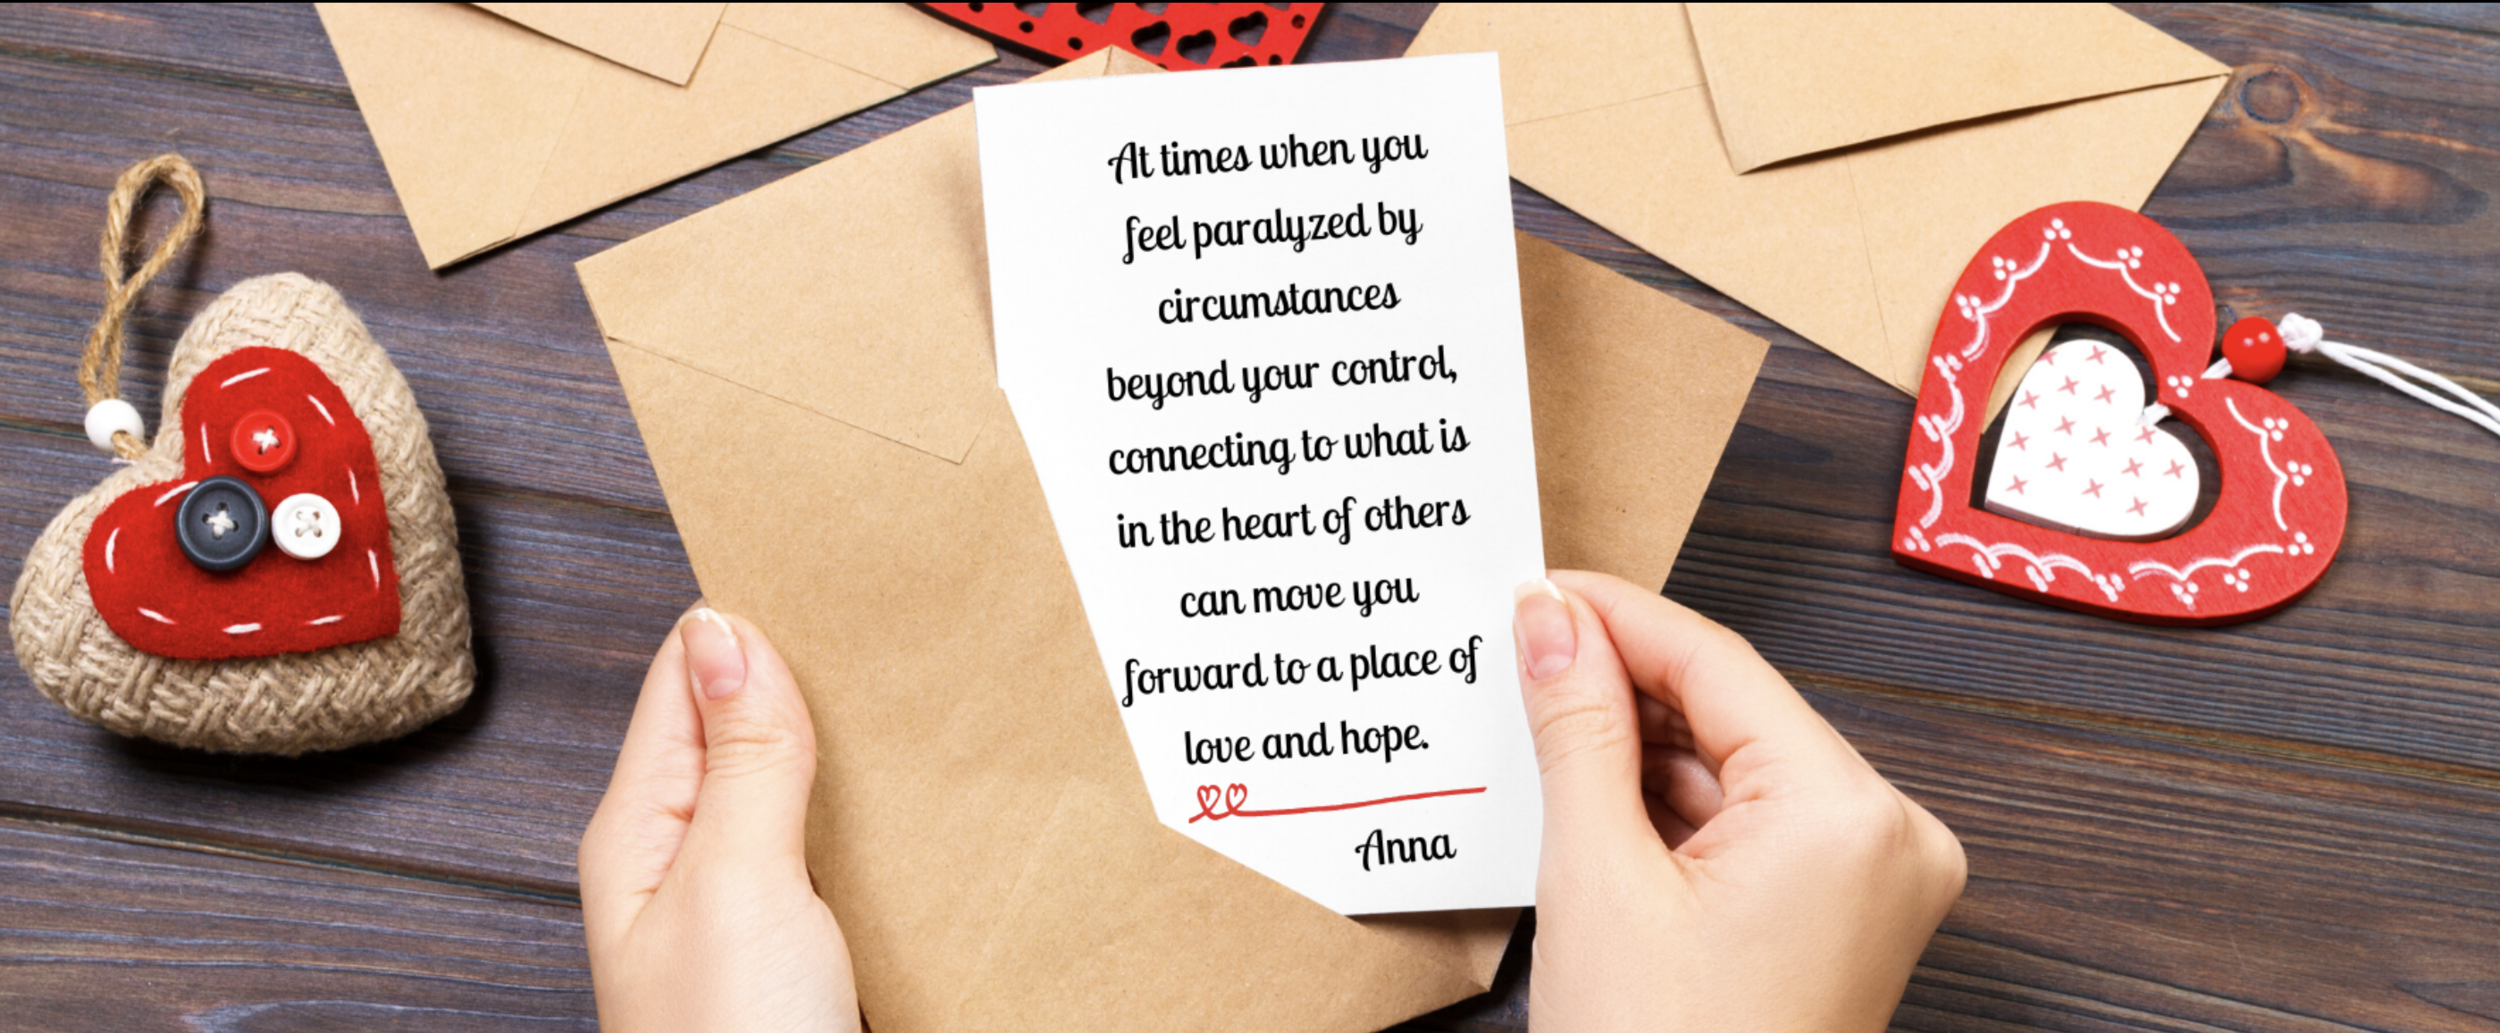 At times when you
feel paralyzed by
circumstances
beyond your control,
connecting to what is
in the heart of others
can move you
forward to a place of
love and hope.
Anna